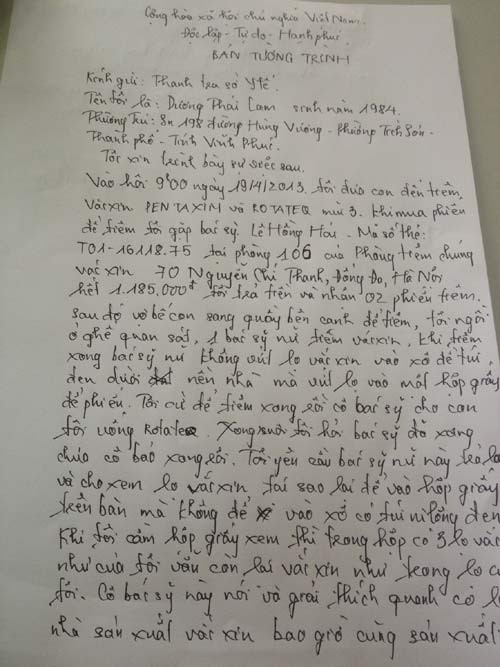 Cộng hòa xã hội chủ nghĩa Việt Nam.
Độc lập - Tự do - Hạnh phúc
BẢN TƯỜNG TRÌNH
Kính gửi: Thanh tra sở Y tế.
Tên tôi là: Dương Phái Cam sinh năm 1984.
Thường Trú: Sn 198 đường Hùng Vương - Phường Tích Sơn -
Thành phố - Tỉnh Vĩnh Phúc.
Tôi xin trình bày sự việc sau.
Vào hồi 9h00 ngày 19/4/2013. tôi đưa con đến tiêm
Vácxin PENTAXIM và ROTATEQ mũi 3. Khi mua phiếu
để tiêm tôi gặp bác sỹ Lê Hồng Hải. Mã số thẻ:
T01-16118.75 tại phòng 106 của Phòng tiêm chủng
vác xin 70 Nguyễn Chí Thanh, Đống Đa, Hà Nội
hết 1.185.000đ tôi trả tiền và nhận 02 phiếu tiêm.
sau đó vợ bế con sang quầy bên cạnh để tiêm, tôi ngồi
ở ghế quan sát, 1 bác sỹ nữ tiêm vácxin, khi tiêm
xong bác sỹ nữ không vứt lọ vácxin vào xô để túi
đen dưới nền nhà mà vứt lọ vào một hộp giấy
để phiếu. Tôi cứ để tiêm xong rồi cô bác sỹ cho con
tôi uống Rotateq. Xong xuôi tôi hỏi bác sỹ đã xong
chưa cô bảo xong rồi. Tôi yêu cầu bác sỹ nữ này trả lọ
và cho xem lọ vácxin tại sao lại để vào hộp giấy
trên bàn mà không để vào xô có túi nilông đen
Khi tôi cầm hộp giấy xem thì trong hộp có 3 lọ vác
như của tôi vẫn còn lại vácxin như trong lọ c
tôi. Cô bác sỹ này nói và giải thích quanh co l
nhà sản xuất vácxin bao giờ cũng sản xuất